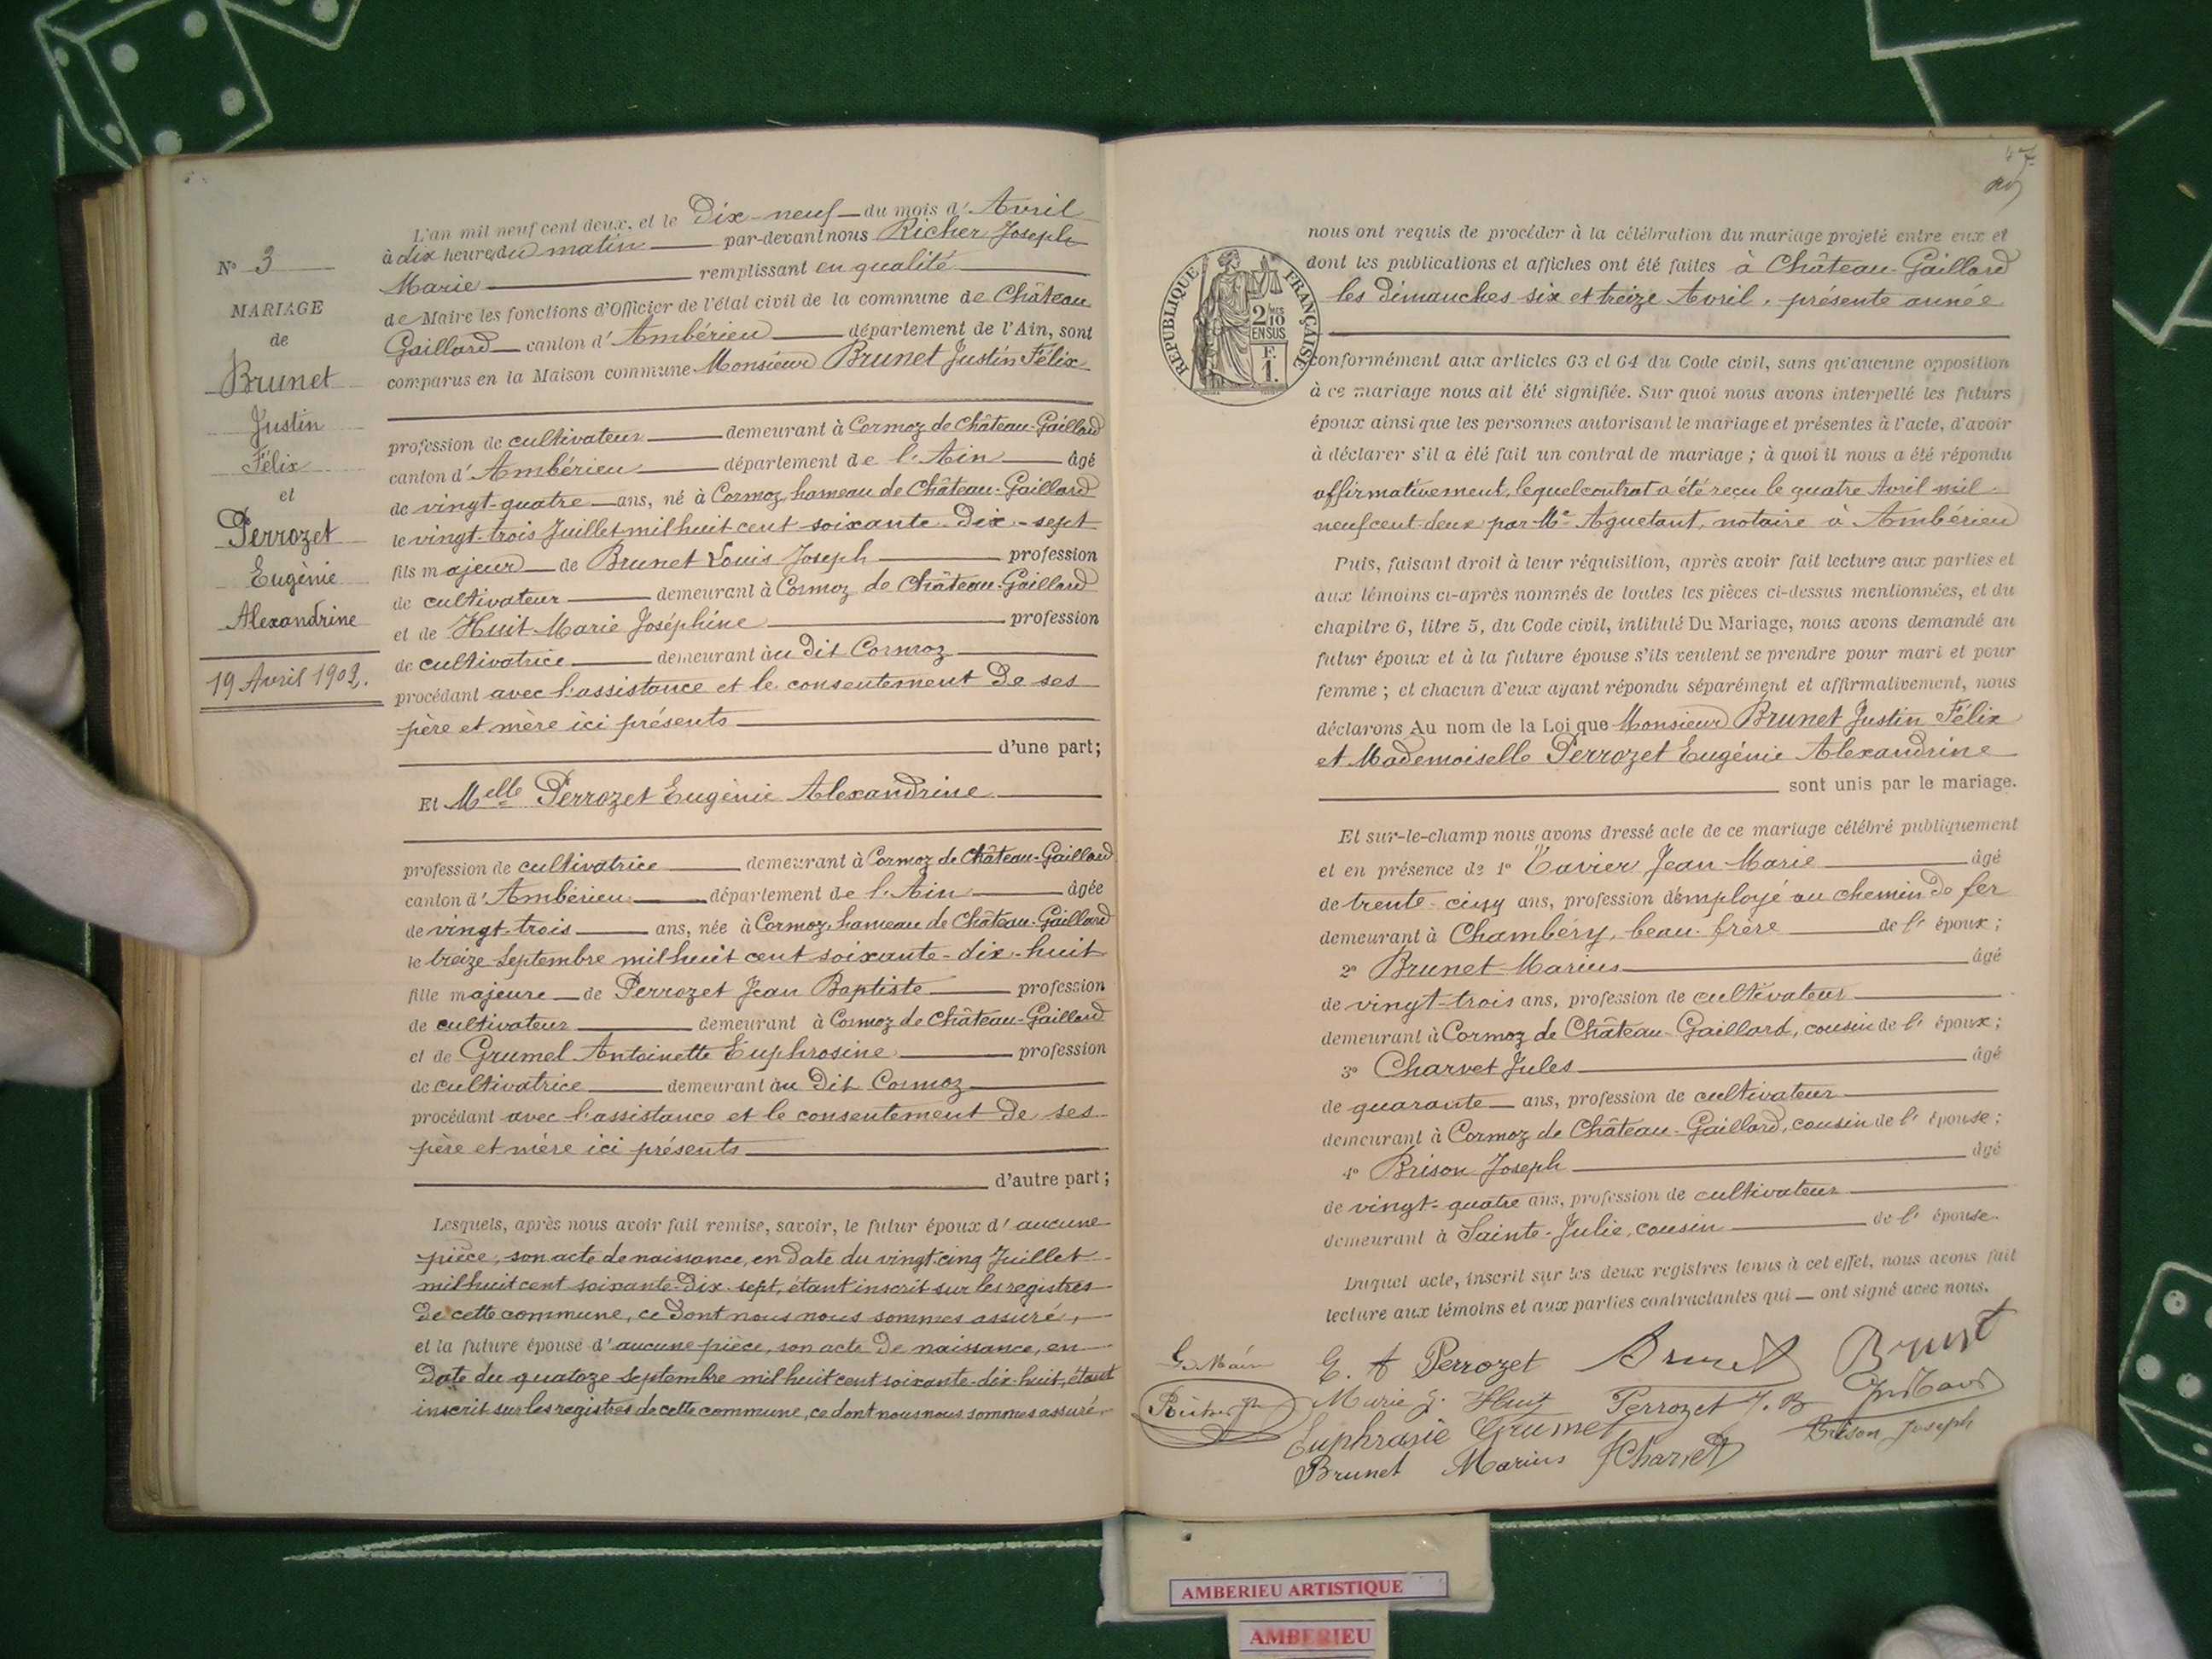 N° 3
MARIAGE
de
Brunet
Justin
Félix
et
Perrozet
Eugènie
Alexandrine
19 Avril 1902.
L'an mil neuf cent deux, et le Dix-neuf du mois d'Avril
à dix heures du matin par-devant nous Richer Joseph
Marie remplissant en qualité
de Maire les fonctions d'Officier de l'état civil de la commune de Château
Gaillard canton d'Ambérieu département de l'Ain, sont
comparus en la Maison commune Monsieur Brunet Justin Félix
profession de cultivateur demeurant à Cormoz de Château-Gaillard
canton d'Ambérieu département de l'Ain âgé
de vingt-quatre ans, né à Cormoz, hameau de Château-Gaillard
le vingt-trois Juillet mil huit cent soixante-Dix-sept
fils majeur de Brunet Louis Joseph profession
de cultivateur demeurant à Cormoz de Château-Gaillard
et de Huit Marie Joséphine profession
de cultivatrice demeurant au Dit Cormoz
procédant avec l'assistance et le consentement De ses
père et mère ici présents
d'une part;
Et Melle Perrozet Eugènie Alexandrine
profession de cultivatrice demeurant à Cormoz de Château-Gaillard
canton d'Ambérieu département de l'Ain âgée
de vingt-trois ans, née à Cormoz, hameau de Château-Gaillard
le treize Septembre mil huit cent soixante-dix-huit
fille majeure de Perrozet Jean Baptiste profession
de cultivateur demeurant à Cormoz de Château-Gaillard
et de Grumel Antoinette Euphrosine profession
de cultivatrice demeurant au Dit Cormoz
procédant avec l'assistance et le consentement De ses
père et mère ici présents
d'autre part;
Lesquels, après nous avoir fait remise, savoir, le futur époux d'aucune
pièce, son acte de naissance, en Date du vingt-cinq Juillet
mil huit cent soixante-Dix-sept, étant inscrit sur les registres
De cette commune, ce Dont nous nous sommes assuré,
et la future épouse d'aucune pièce, son acte De naissance, en
Date du quatoze Septembre mil huit cent soixante-dix-huit, étant
inscrit sur les registres de cette commune, ce dont nous nous sommes assuré.
47
REPUBLIQUE FRANÇAISE
2 MES 10 EN SUS
F. 1.
nous ont requis de procéder à la célébration du mariage projeté entre eux et
dont les publications et affiches ont été faites à Château-Gaillard
les dimanches six et treize Avril, présente année
conformément aux articles 63 et 64 du Code civil, sans qu'aucune opposition
à ce mariage nous ait été signifiée. Sur quoi nous avons interpellé les futurs
époux ainsi que les personnes autorisant le mariage et présentes à l'acte, d'avoir
à déclarer s'il a été fait un contrat de mariage; à quoi il nous a été répondu
affirmativement, lequel contrat a été reçu le quatre Avril mil
neuf cent deux par Me Aguetant, notaire à Ambérieu
Puis, faisant droit à leur réquisition, après avoir fait lecture aux parties et
aux témoins ci-après nommés de toutes les pièces ci-dessus mentionnées, et du
chapitre 6, titre 5, du Code civil, intitulé Du Mariage, nous avons demandé au
futur époux et à la future épouse s'ils veulent se prendre pour mari et pour
femme; et chacun d'eux ayant répondu séparément et affirmativement, nous
déclarons Au nom de la Loi que Monsieur Brunet Justin Félix
et Mademoiselle Perrozet Eugénie Alexandrine
sont unis par le mariage.
Et sur-le-champ nous avons dressé acte de ce mariage célébré publiquement
et en présence de 1° Tavier Jean-Marie âgé
de trente-cinq ans, profession d'employé au chemin De fer
demeurant à Chambéry, beau-frère de l'époux;
2° Brunet Marius âgé
de vingt-trois ans, profession de cultivateur
demeurant à Cormoz de Château-Gaillard, cousin de l'époux;
3° Charvet Jules âgé
de quarante ans, profession de cultivateur
demeurant à Cormoz de Château-Gaillard, cousin de l'épouse;
4° Brison Joseph âgé
de vingt-quatre ans, profession de cultivateur
demeurant à Sainte-Julie, cousin de l'épouse.
Duquel acte, inscrit sur les deux registres tenus à cet effet, nous avons fait
lecture aux témoins et aux parties contractantes qui ont signé avec nous.
Le Maire E. A Perrozet Brunet Brunet
Richer Marie J. Huit Perrozet J. B
Euphrasie Grumel Brison Joseph
Brunet Marius JCharvet
AMBERIEU ARTISTIQUE
AMBERIEU